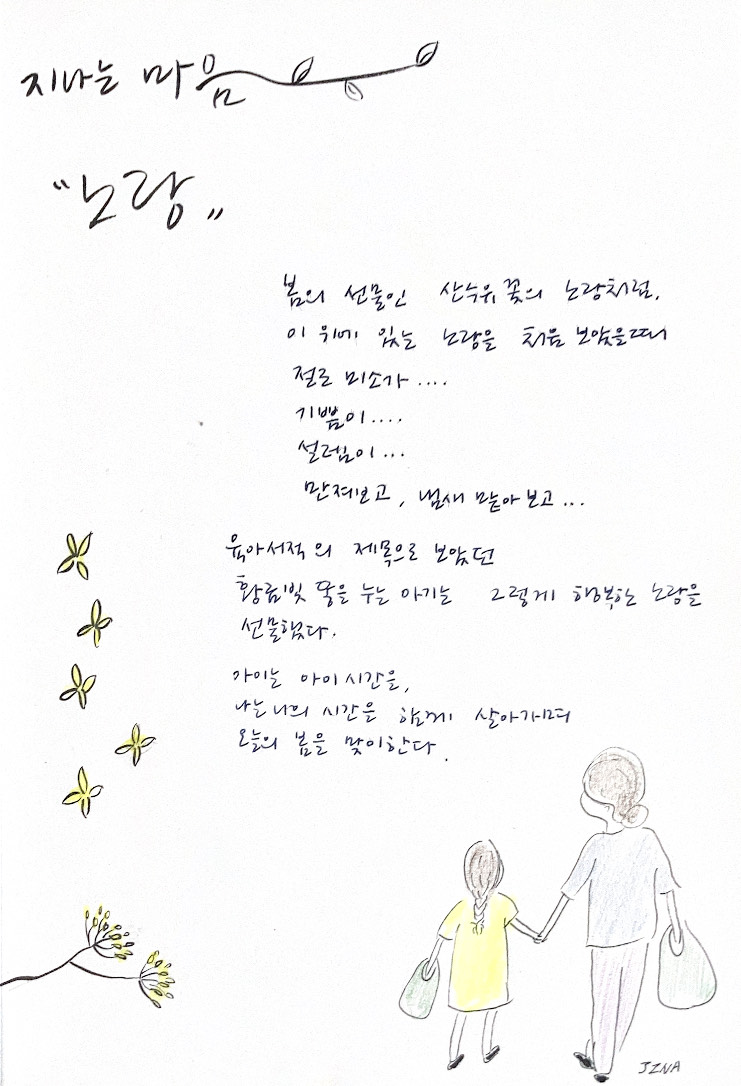 지나는 마음
"노랑"
봄의 선물인 산수유 꽃의 노랑처럼,
이 위에 있는 노랑을 처음 보았을때
절로 미소가 ....
기쁨이 ....
설레임이 ...
만져보고, 냄새 맡아 보고 ...
육아서적의 제목으로 보았던
황금빛 똥을 누는 아기는 그렇게 행복한 노랑을
선물했다.
아이는 아이 시간을,
나는 나의 시간을 함께 살아가며
오늘의 봄을 맞이한다.
JZNA